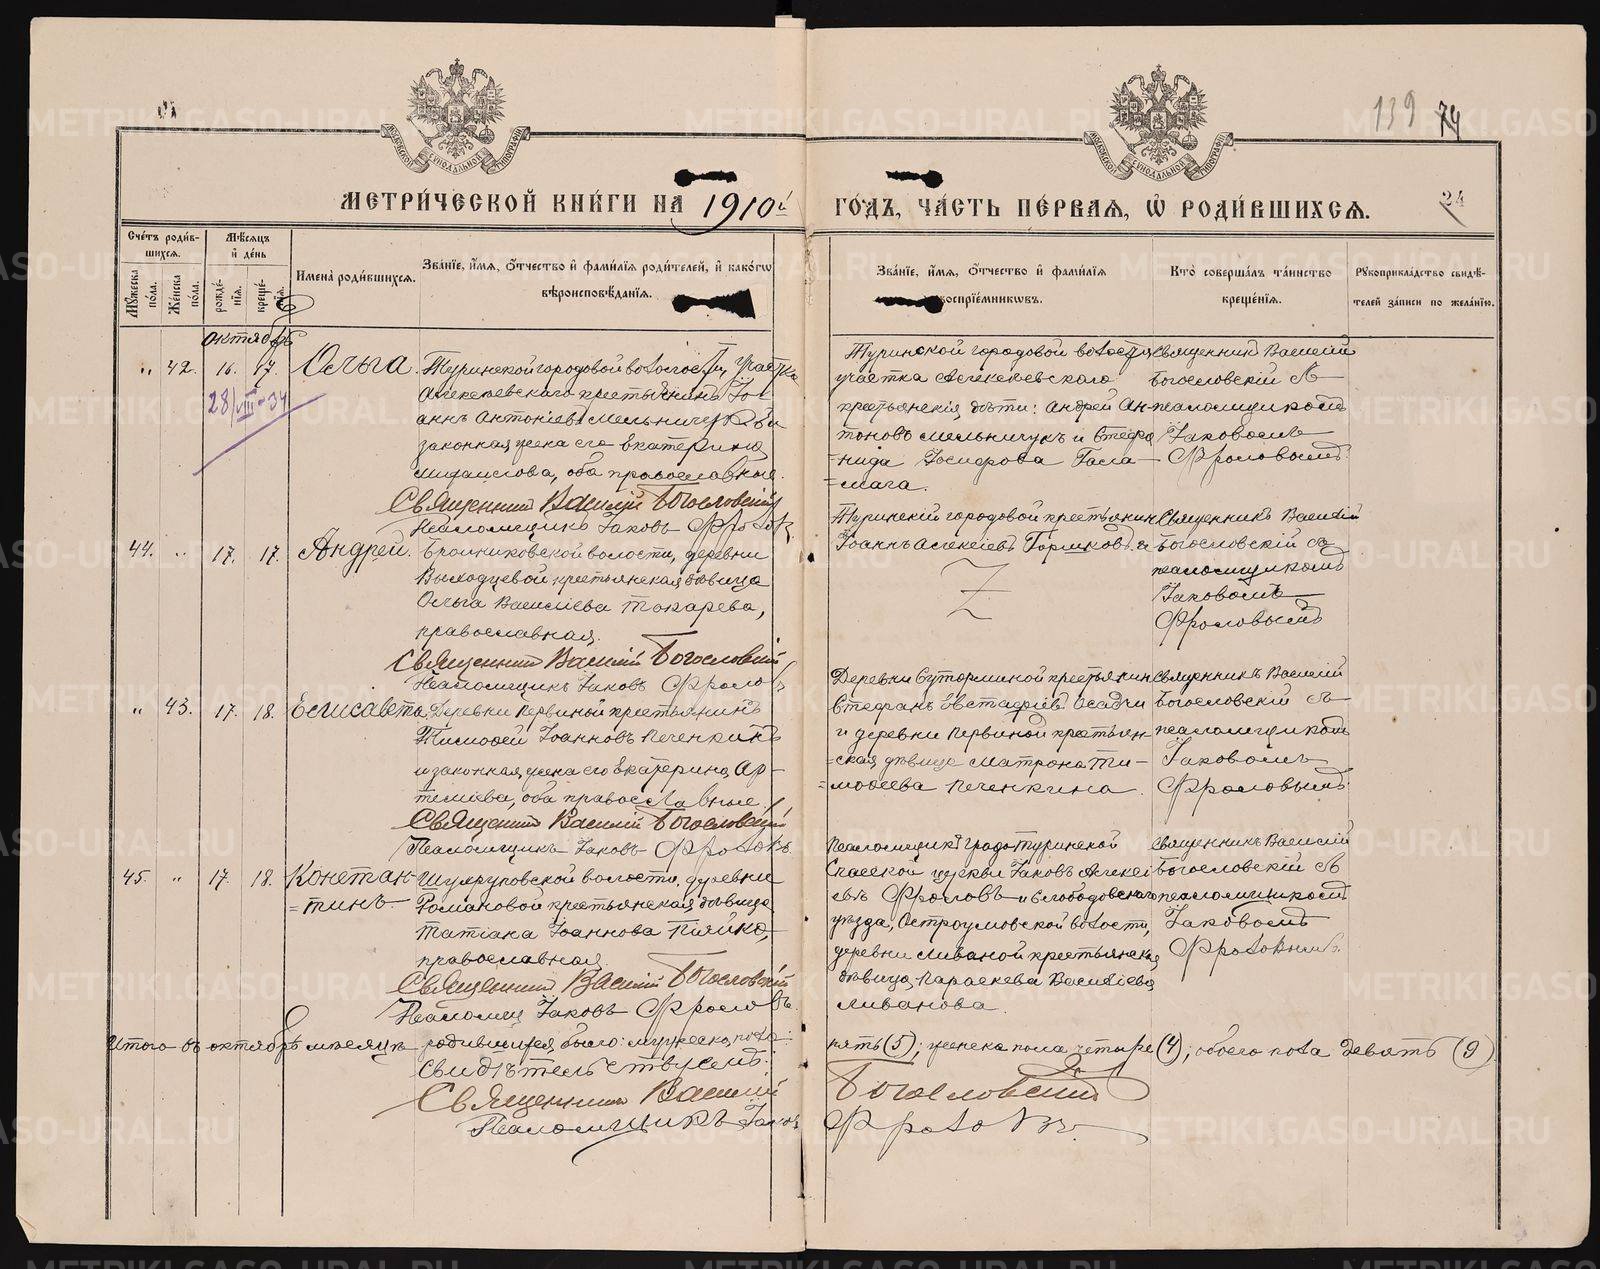 139 74
МЕТРИ́ЧЕСКОЙ КНИ́ГИ НА 1910й ГО́ДЪ, ЧА́СТЬ ПЕ́РВАЯ, Ѡ РОДИ́ВШИХСЯ.
24
Сче́тъ роди́вшихся.
Му́жеска пола.
Же́нска пола.
Мѣ́сяцъ и де́нь
рожде́нія.
креще́нія.
Имена̀ роди́вшихся.
Зва́ніе, и́мя, о́тчество и фами́лія роди́телей, и како́гѡ
вѣроисповѣ́данія.
Зва́ніе, и́мя, о́тчество и фами́лія
воспріе́мниковъ.
Кто̀ соверша́лъ та́инство
креще́нія.
Рꙋкоприкла́дство свидѣ́-
телей за́писи по жела́нію.
Октябрь
„ 42. 16. 17. Ольга.
28/VIII-34
Туринской городовой волости, участка
Алексеевскаго крестьянинъ Іо-
аннъ Антоніевъ Мельничукъ и
законная жена его Екатерина
Михаилова, оба православные.
Священникъ Василій Богословскій
Псаломщикъ Іаковъ Фроловъ
Туринской городовой волости
участка Алексеевскаго
крестьянскія дѣти: Андрей Ан-
тоновъ Мельничукъ и Стефа-
нида Іосифова Гала-
мага.
Священникъ Василій
Богословскій съ
псаломщикомъ
Іаковомъ
Фроловымъ.
44. „ 17. 17. Андрей.
Бронниковской волости, деревни
Выходцевой крестьянская дѣвица
Ольга Василіева Токарева,
православная.
Священникъ Василій Богословскій
Псаломщикъ Іаковъ Фроловъ
Туринскій городовой крестьянинъ
Іоаннъ Алексіевъ Горшковъ.
Священникъ Василій
Богословскій съ
псаломщикомъ
Іаковомъ
Фроловымъ
„ 43. 17. 18. Елисавета.
Деревни Первиной крестьянинъ
Тимофей Іоанновъ Печенкинъ
и законная жена его Екатерина Ар-
теміева, оба православные.
Священникъ Василій Богословскій
Псаломщикъ Іаковъ Фроловъ.
Деревни Суторминой крестьянинъ
Стефанъ Евстафіевъ Осадчи
и деревни Первиной крестьян-
ская дѣвица Матрона Ти-
мофеева Печенкина.
Священникъ Василій
Богословскій съ
псаломщикомъ
Іаковомъ
Фроловымъ.
45. „ 17. 18. Констан-
тинъ.
волости, деревни
Романовой крестьянская дѣвица
Татіана Іоаннова
православная.
Священникъ Василій Богословскій
Псаломщ Іаковъ Фроловъ.
Псаломщикъ градо Туринской
Спасской церкви Іаковъ Алексі-
евъ Фроловъ и Слободовскаго
уѣзда, Остроумовской волости,
деревни Ливаной крестьянская
дѣвица Параскева Василіева
Ливанова.
Священникъ Василій
Богословскій съ
псаломщикомъ
Іаковомъ
Фроловымъ.
Итого въ октябрѣ мѣсяцѣ родившихся было: мужеска пола: пять (5); женска пола четыре (4); обоего пола девять (9)
Свидѣтельствуемъ:
Священникъ Василій Богословскій
Псаломщикъ Іаковъ Фроловъ.
METRIKI.GASO-URAL.RU